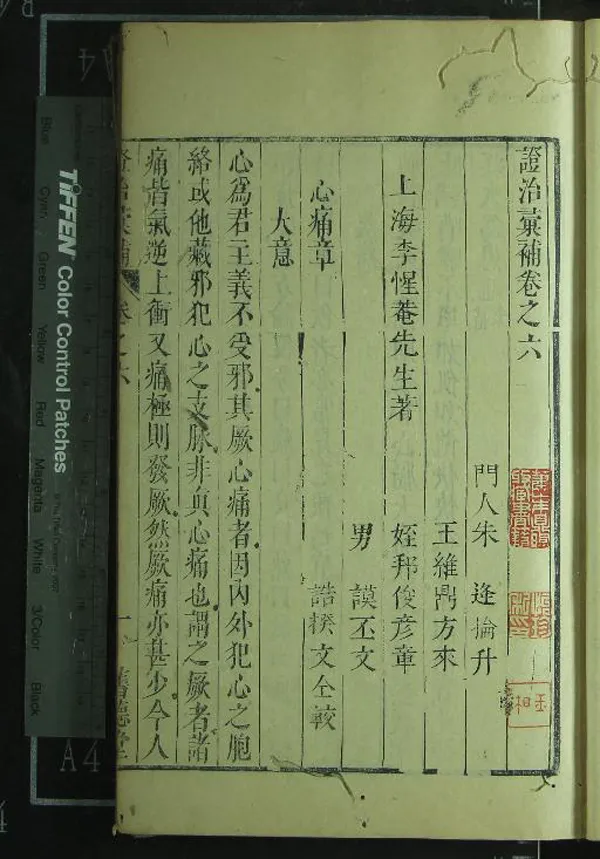 證治彚補卷之六
上海李惺菴先生著
門人朱 逢掄升
王維鼎方來
姪邦俊彦章
男 謨丕文
誥楑文仝較
心痛章
大意
心爲君主義不受邪其厥心痛者因内外犯心之胞
絡或他藏邪犯心之支脉非眞心痛也謂之厥者諸
痛皆氣逆上衝又痛極則發厥然厥痛亦甚少今人
證治彚補 卷之六 一 舊德堂
TIFFEN Color Control Patches
Blue Cyan Green Yellow Red Magenta White 3/Color Black
A4
A4